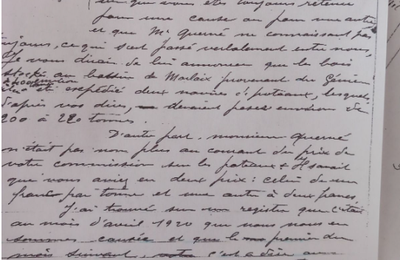 sur que vous êtes toujours retenu
pour une cause ou pour une autre
et que Mr Querné ne connaissant pas,
toujours, ce qui s'est passé verbalement entre nous,
je vous dirai de lui annoncer que le bois
stocké au bassin de Morlaix provenant du Génie
a été expédié deux navires d'poteaux, lesquels
d'après vos dires, devaient passer environ de
200 à 220 tonnes.
D'autre part, monsieur Querné
n'était pas non plus au courant du prix de
votre commission sur les poteaux & Il savait
que vous aviez eu deux prix : celui de un
franc par tonne et une autre à deux francs.
J'ai trouvé sur un registre que c'était
au mois d'avril 1920 que nous nous en
sommes causés et que le premier du
mois suivant, c'est à dire aux